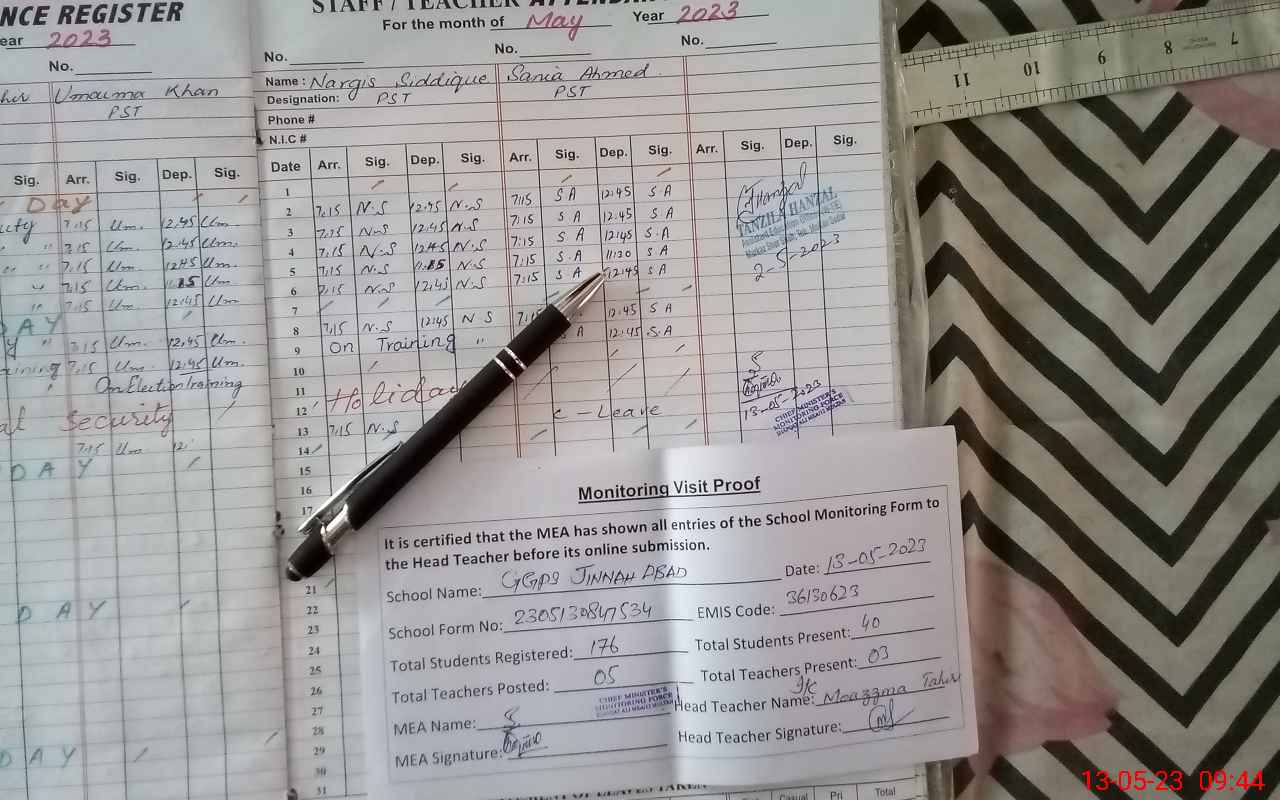 NCE REGISTER
ear 2023
No.
Umauma Khan
PST
Sig. Arr. Sig. Dep. Sig.
Day
7:15 Um. 12,45 Um.
" " 7:15 Um. 12.45 Um.
" " 7:15 Um. 12.45 Um.
" 7:15 Um. 11.15 Um.
" 7:15 Um. 12.45 Um.
DAY
" 7.15 Um. 12.45 Um.
ining 7.15 Um. 12.45 Um.
" On Election training
al Security
7:15 Um. 12
DAY
DAY
DAY
STAFF / TEACHER ATTENDAN
For the month of May Year 2023
No. No. No.
Name : Nargis Siddique Sania Ahmed.
Designation: PST PST
Phone #
N.I.C #
Date Arr. Sig. Dep. Sig. Arr. Sig. Dep. Sig. Arr. Sig. Dep. Sig.
1
2 7.15 N.S 12.45 N.S 7:15 S A 12:45 S.A
3 7.15 N.S 12.45 N.S 7:15 S A 12:45 S A
4 7.15 N.S 12.45 N.S 7:15 S A 12:45 S A
5 7:15 N.S 11.15 N.S 7:15 S.A 11:30 S A
6 7:15 N.S 12:45 N.S 7:15 S A 12:45 S A
7
8 7:15 N.S 12:45 N S 7:15 12:45 S A
9 On Training " A 12:45 S.A
10
11
12 Holiday
13 7:15 N.S c - Leave
14
15
16
17
21
22
23
24
25
26
27
28
29
30
31
TANZILA HANZAL
2-5-2023
13-05-2023
CHIEF MINISTER'S
MONITORING FORCE
Monitoring Visit Proof
It is certified that the MEA has shown all entries of the School Monitoring Form to
the Head Teacher before its online submission.
School Name: GGPS JINNAH ABAD Date: 13-05-2023
School Form No: 2305130847534 EMIS Code: 36130623
Total Students Registered: 176 Total Students Present: 40
Total Teachers Posted: 05 Total Teachers Present: 03
MEA Name: Head Teacher Name: Moazzma Tahir
CHIEF MINISTER'S
MONITORING FORCE
MEA Signature: Head Teacher Signature:
Casual Pri Total
11 10 9 8 7
13-05-23 09:44